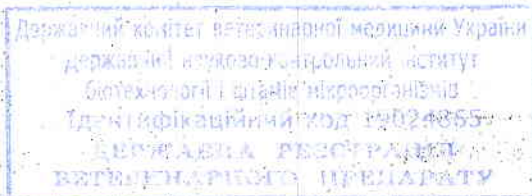 Державний комітет ветеринарної медицини України
державний науково-контрольний інститут
біотехнології і штамів мікроорганізмів
Ідентифікаційний код 19024865
ДЕРЖАВНА РЕЄСТРАЦІЯ
ВЕТЕРИНАРНОГО ПРЕПАРАТУ